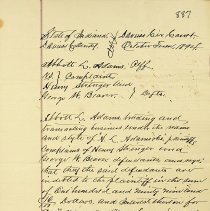 887
State of Indiana } Daviess Cir Court
Daviess County } October Term, 1894
Abbott L. Adams. Plff.
vs } Complaint
Henry Stringer and
George W. Beaver. } Defts.
Abbott L. Adams trading and
transacting business under the name
and style of A. L. Adams plaintiff,
Complains of Henry Stringer and
George W. Beaver defendants and says
that they the said defendants are
indebted to the plaintiff in the sum
of One hundred and ninety nine and
Dollars, and